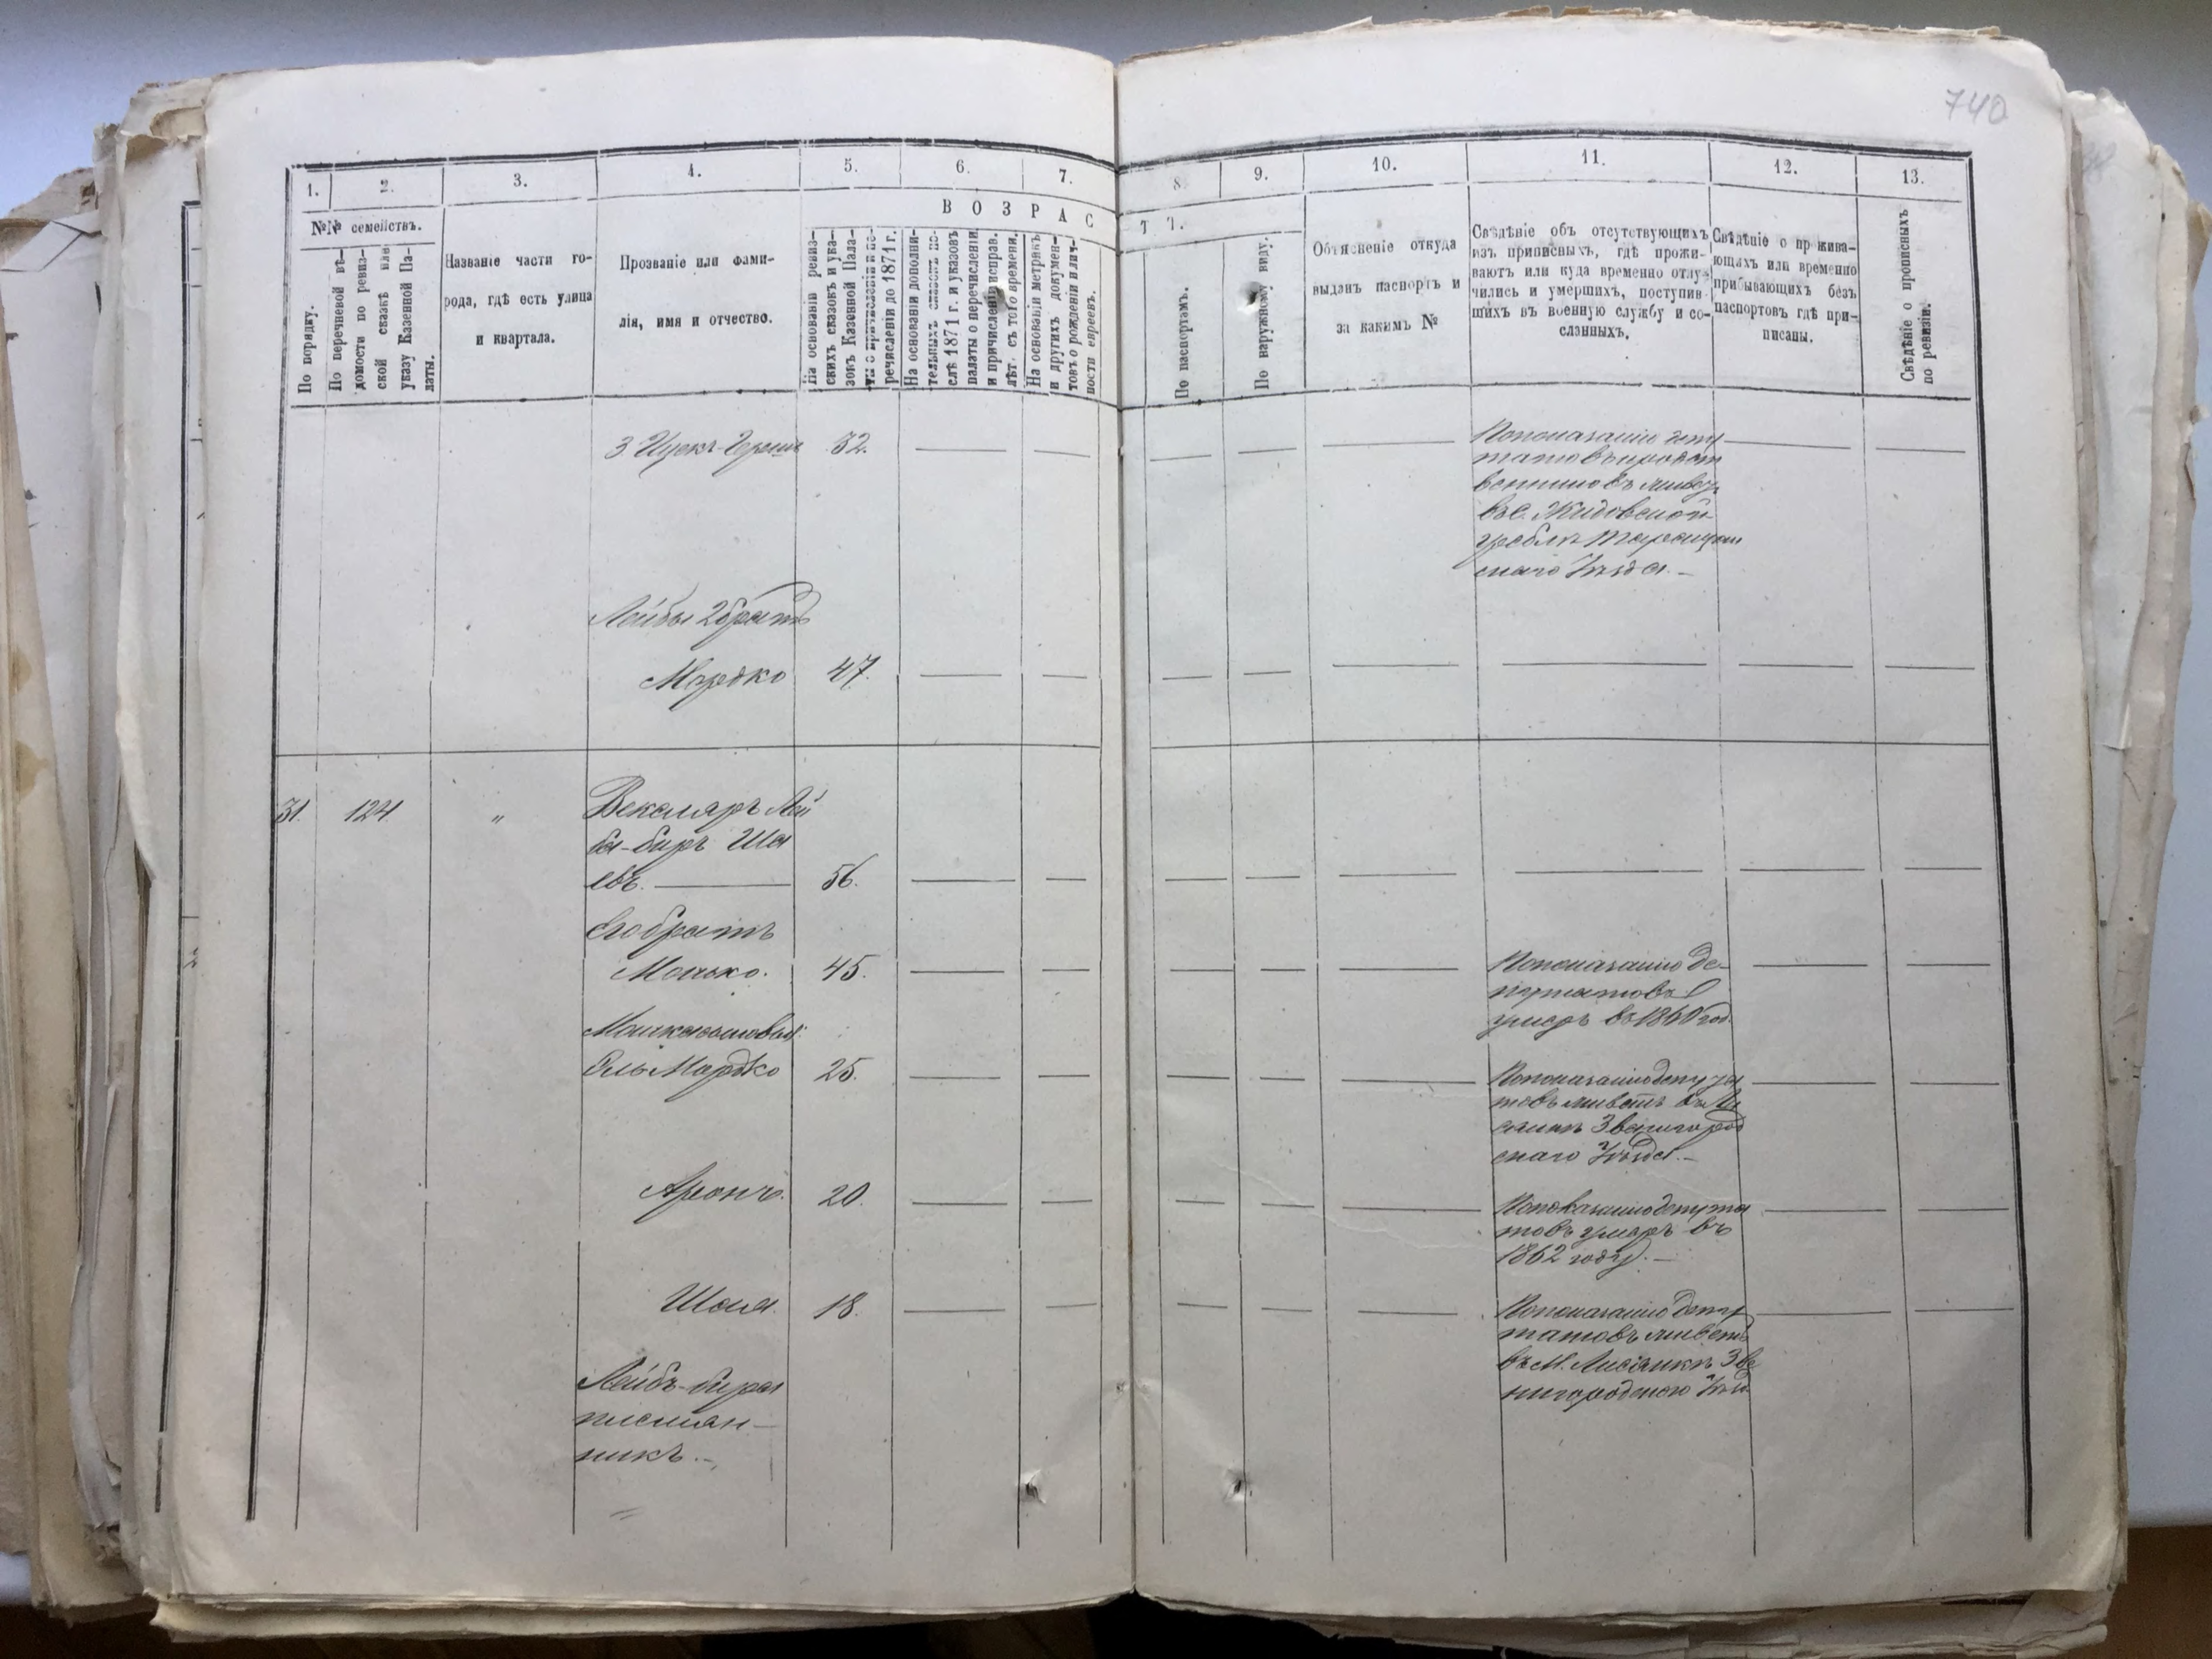 740
1. 2. 3. 4. 5. 6. 7. 8. 9. 10. 11. 12. 13.
№№ семействъ.
По порядку.
По перечневой вѣ-
домости по ревиз-
ской сказкѣ или
указу Казенной Па-
латы.
Названіе части го-
рода, гдѣ есть улица
и квартала.
Прозваніе или фами-
лія, имя и отчество.
ВОЗРАС
ТЪ.
На основаніи ревиз-
скихъ сказокъ и ука-
зовъ Казенной Пала-
ты о причисленіи и пе-
речисленіи до 1871 г.
На основаніи дополни-
тельныхъ сказокъ по-
слѣ 1871 г. и указовъ
палаты о перечисленіи
и причисленіи исправ.
лѣт. съ того времени.
На основаніи метрикъ
и другихъ докумен-
товъ о рожденіи и лич-
ности евреевъ.
По паспортамъ.
По наружному виду.
Объясненіе откуда
выданъ паспортъ и
за какимъ №
Свѣдѣніе объ отсутствующихъ
изъ приписныхъ, гдѣ прожи-
ваютъ или куда временно отлу-
чились и умершихъ, поступив-
шихъ въ военную службу и со-
сланныхъ.
Свѣдѣніе о прожива-
ющихъ или временно
прибывающихъ безъ
паспортовъ гдѣ при-
писаны.
Свѣдѣніе о прописныхъ
по ревизіи.
3 Ицекъ-Герш 32.
По показанію депу
татовъ и родст
венниковъ живет
въ с. Жидовской
гребль Таращан
скаго Уѣзда. -
Лейбы 2 братъ
Мордко 47.
31. 124 "
Векслярь Лей
ба-биръ Ша
евъ. 56.
Его братъ
Мошко. 45.
По показанію де-
путатовъ
умеръ въ 1860 год.
Мошки сыновья:
Сль Мордко 25.
По показанію депута
товъ живетъ въ Ли
сянкѣ Звенигород
скаго Уѣзда. -
Аронъ. 20.
По показанію депута
товъ умеръ въ
1862 году. -
Шая. 18.
По показанію депу
татовъ живетъ
въ М. Лисянкѣ Зве
нигородскаго Уѣзд.
Лейбъ-бира
племян-
никъ. -